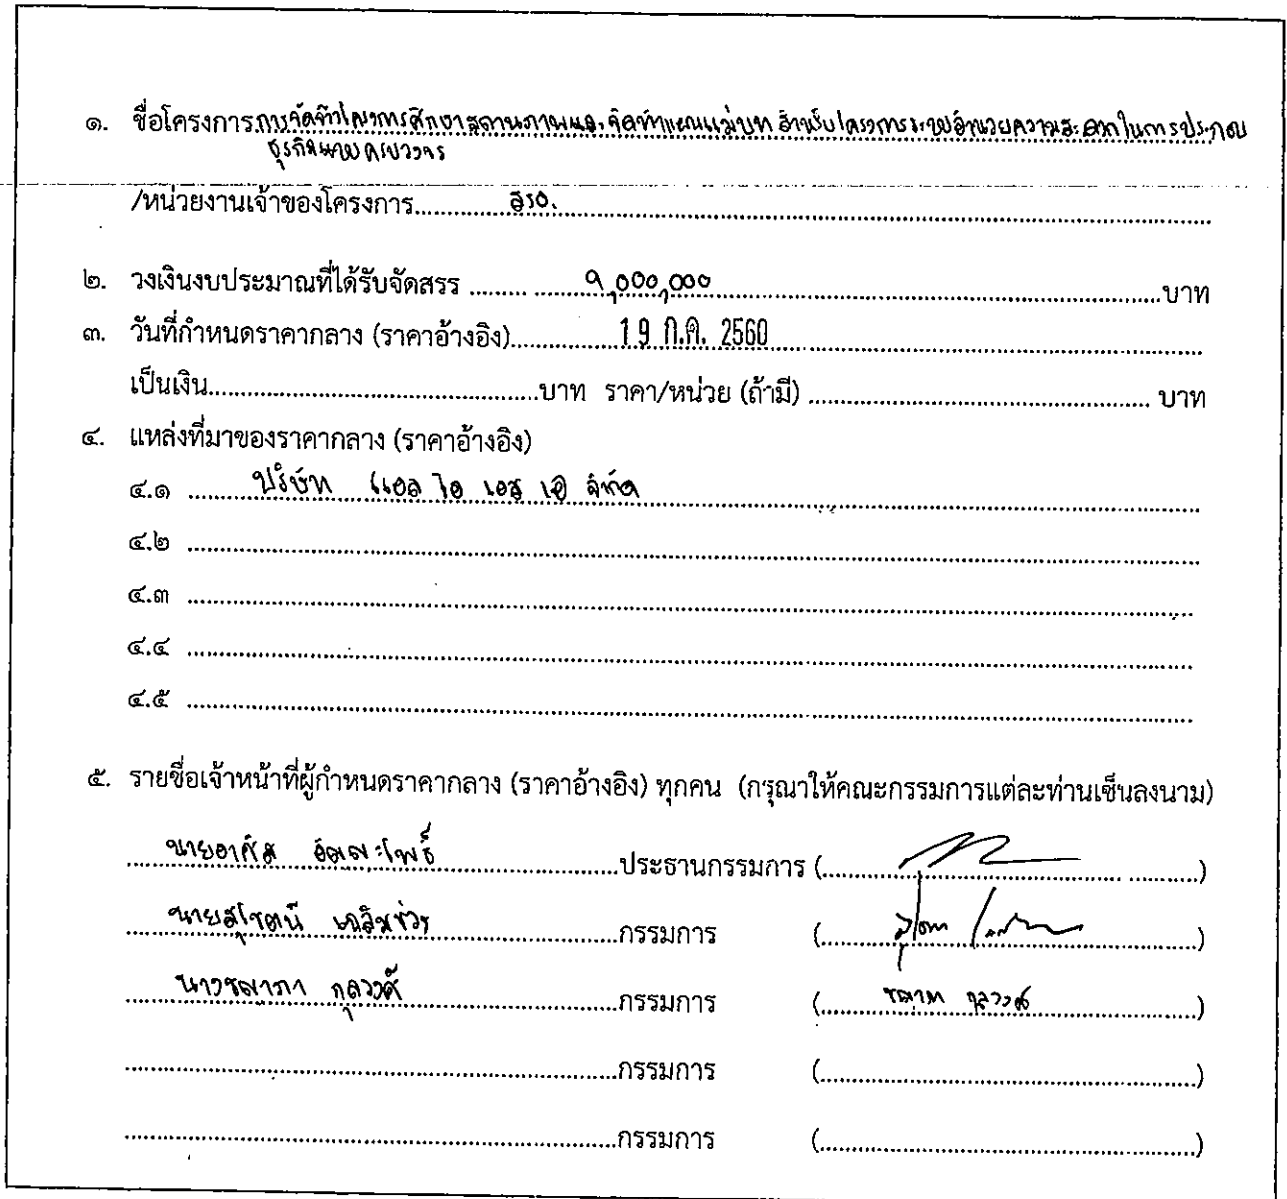 ๑. ชื่อโครงการ การจัดจ้างโครงการศึกษาสถานภาพและจัดทำแผนแม่บท สำหรับโครงการระบบอำนวยความสะดวกในการประกอบ
ธุรกิจแบบครบวงจร
/หน่วยงานเจ้าของโครงการ............สรอ.............
๒. วงเงินงบประมาณที่ได้รับจัดสรร ........ 9,000,000 ........บาท
๓. วันที่กำหนดราคากลาง (ราคาอ้างอิง)........19 ก.ค. 2560........
เป็นเงิน........บาท ราคา/หน่วย (ถ้ามี) ........ บาท
๔. แหล่งที่มาของราคากลาง (ราคาอ้างอิง)
๔.๑ ........บริษัท แอล ไอ เอส เอ จำกัด........
๔.๒ ........
๔.๓ ........
๔.๔ ........
๔.๕ ........
๕. รายชื่อเจ้าหน้าที่ผู้กำหนดราคากลาง (ราคาอ้างอิง) ทุกคน (กรุณาให้คณะกรรมการแต่ละท่านเซ็นลงนาม)
นายอาศิส อัญญะโพธิ์ ........ประธานกรรมการ (........)
นายสุโชตน์ ........กรรมการ (........)
นางชลาภา กุลวงศ์ ........กรรมการ (........)
........กรรมการ (........)
........กรรมการ (........)